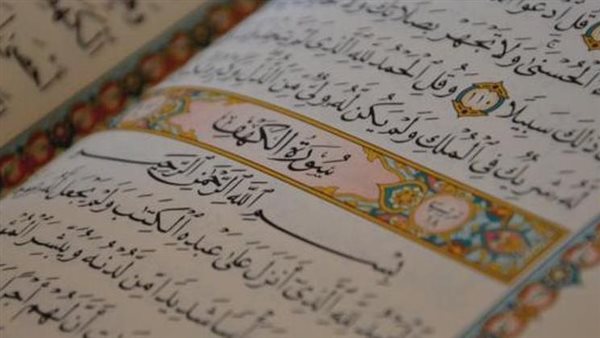 قُلِ ادْعُوا
الْحُسْنَىٰ وَلَا تَجْهَرْ بِصَلَاتِكَ وَلَا
ذَٰلِكَ سَبِيلًا ١١٠ وَقُلِ الْحَمْدُ لِلَّهِ الَّذِي لَمْ يَتَّخِذْ
لَهُ شَرِيكٌ فِي الْمُلْكِ وَلَمْ يَكُن لَّهُ وَلِيٌّ مِّنَ الذُّلِّ
سُورَةُ الْكَهْفِ
بِسْمِ اللَّهِ الرَّحْمَٰنِ الرَّحِيمِ
لِلَّهِ الَّذِي أَنزَلَ عَلَىٰ عَبْدِهِ الْكِتَٰبَ وَلَمْ يَجْعَل لَّهُ
شَدِيدًا مِّن لَّدُنْهُ وَيُبَشِّرَ
أَنَّ لَهُمْ أَجْرًا